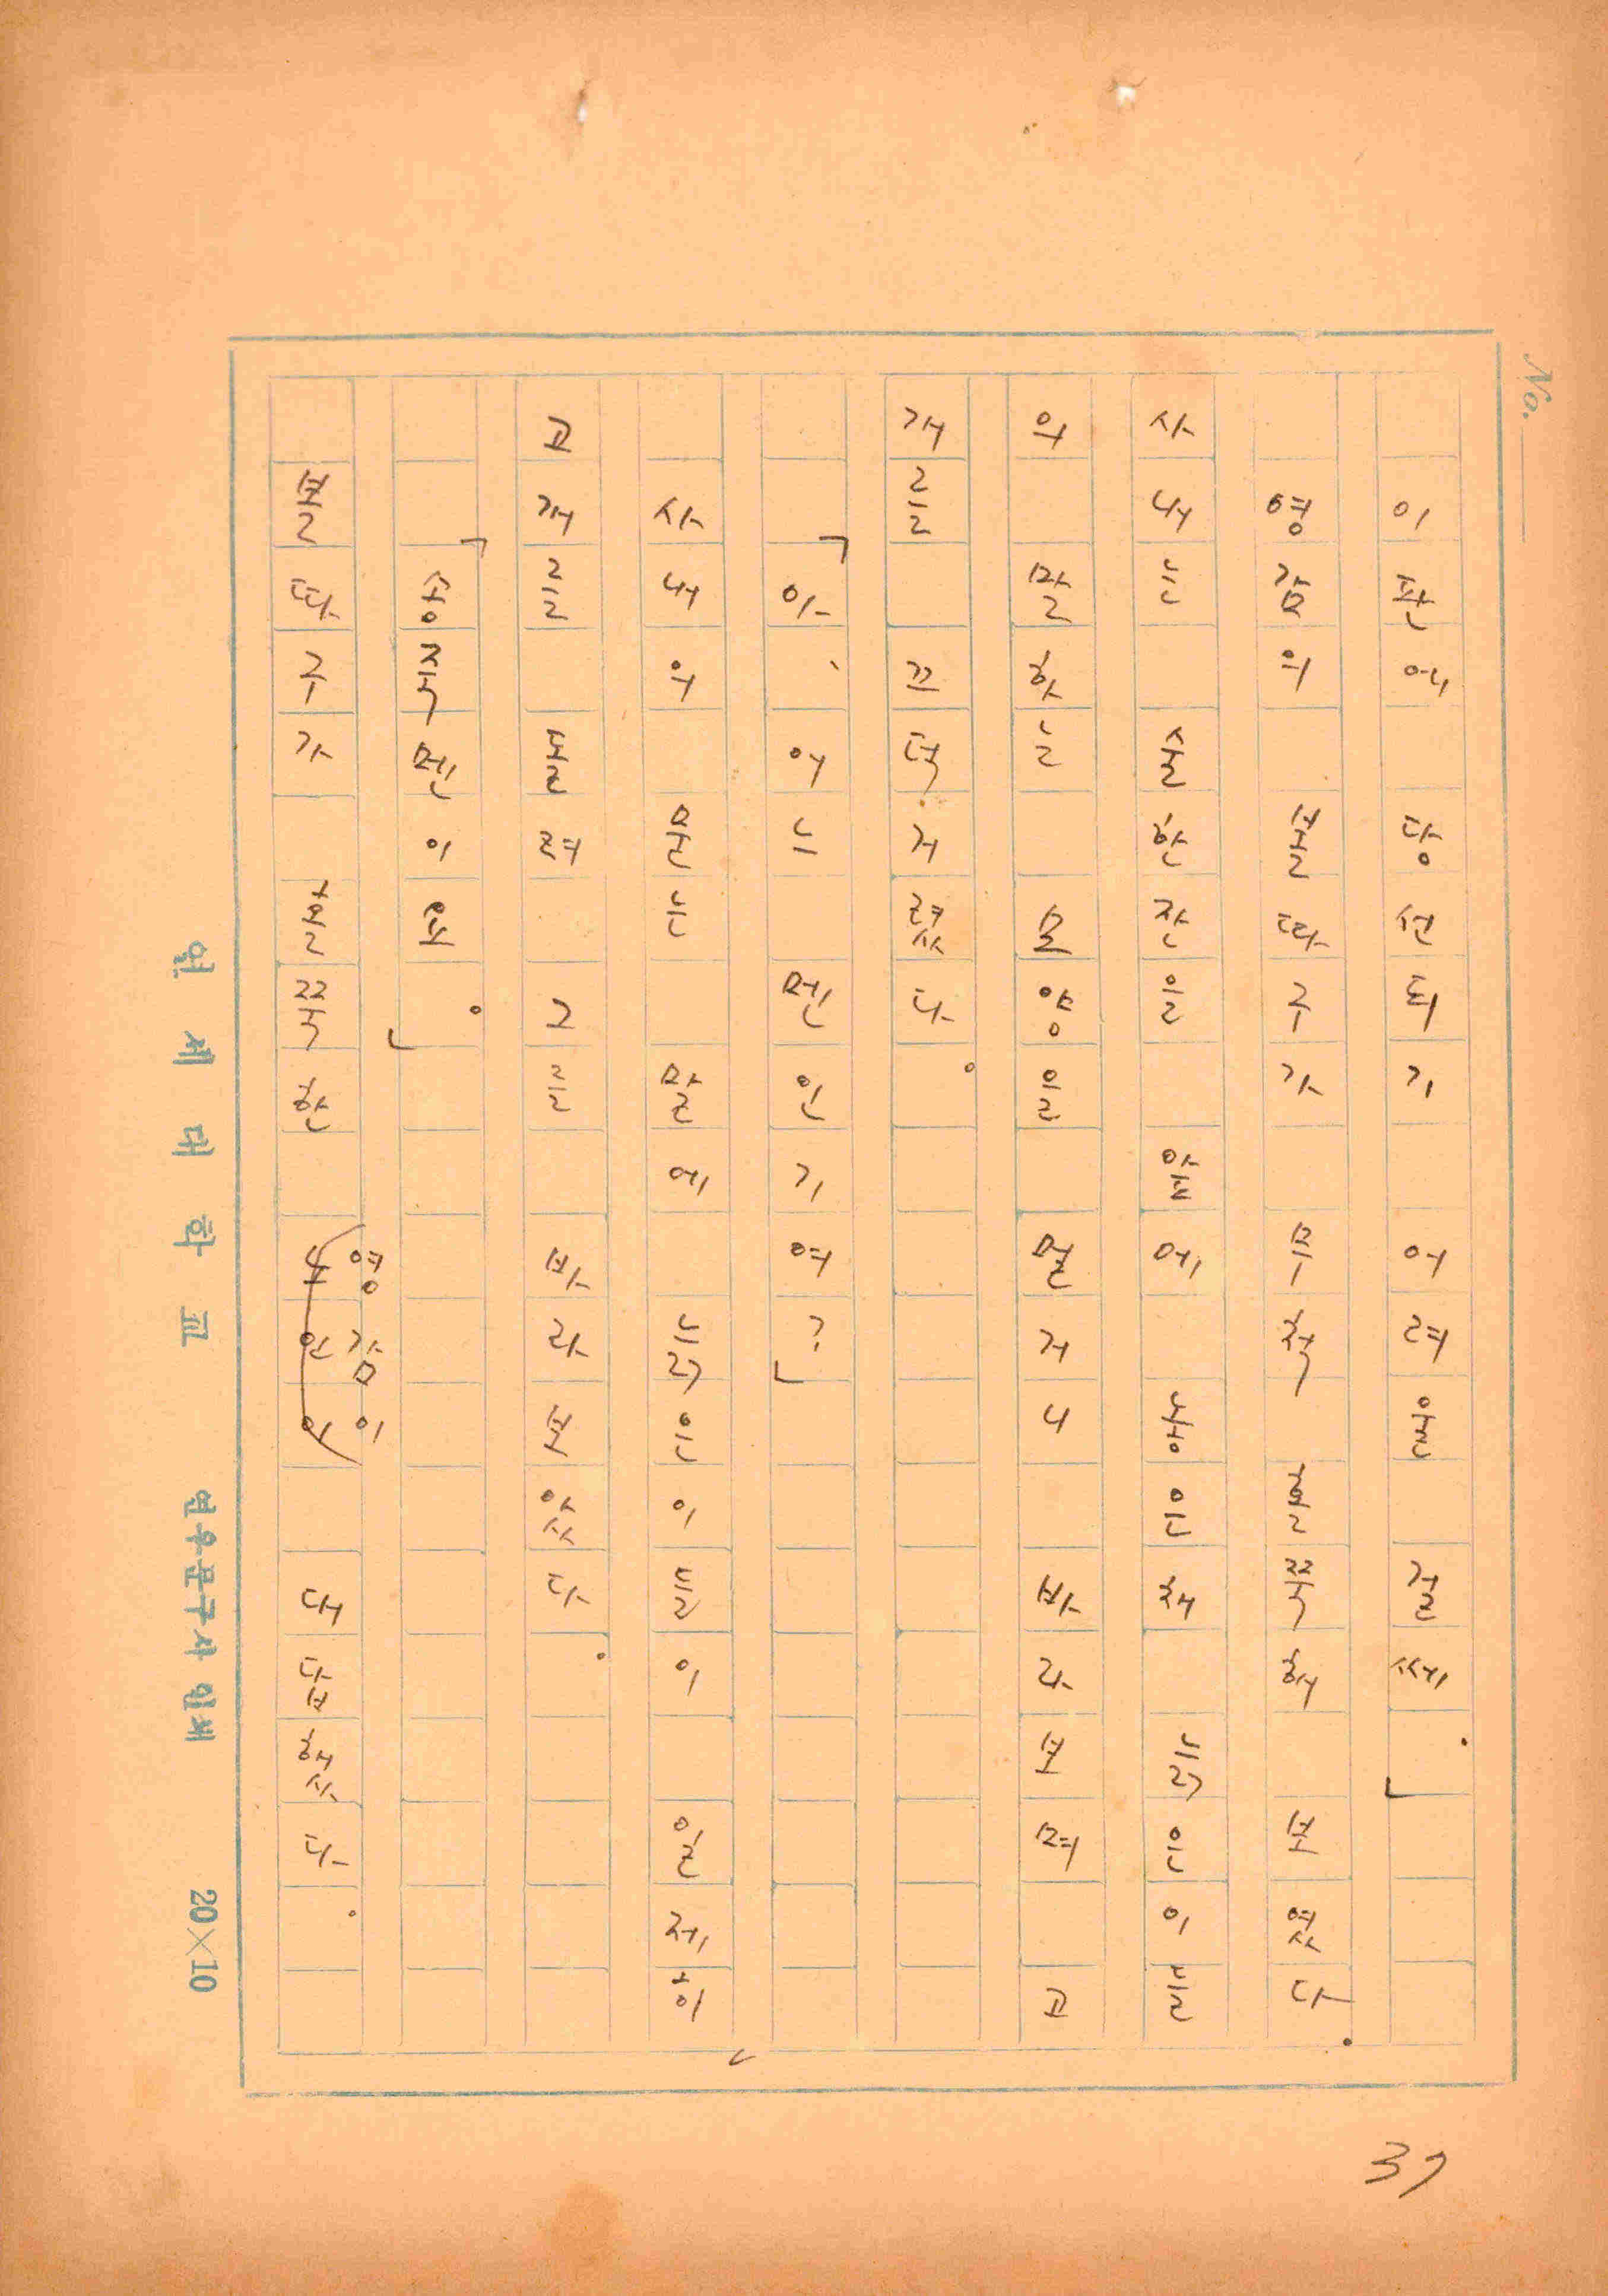 이판에 당선되기 어려울 걸세.」
영감의 볼따구가 무척 홀쭉해 보였다.
사내는 술한잔을 앞에 놓인채 늙은이들
의 말하는 모양을 멀거니 바라보며 고
개를 끄덕거렸다.
「아、어느 면인기여?」
사내의 묻는 말에 늙은이들이 일제히
고개를 돌려 그를 바라보았다.
「성진면이여.」
볼따구가 홀쭉한 영감이 대답했다.
연세대학교 연우문구사 인쇄 20×10
No.
37